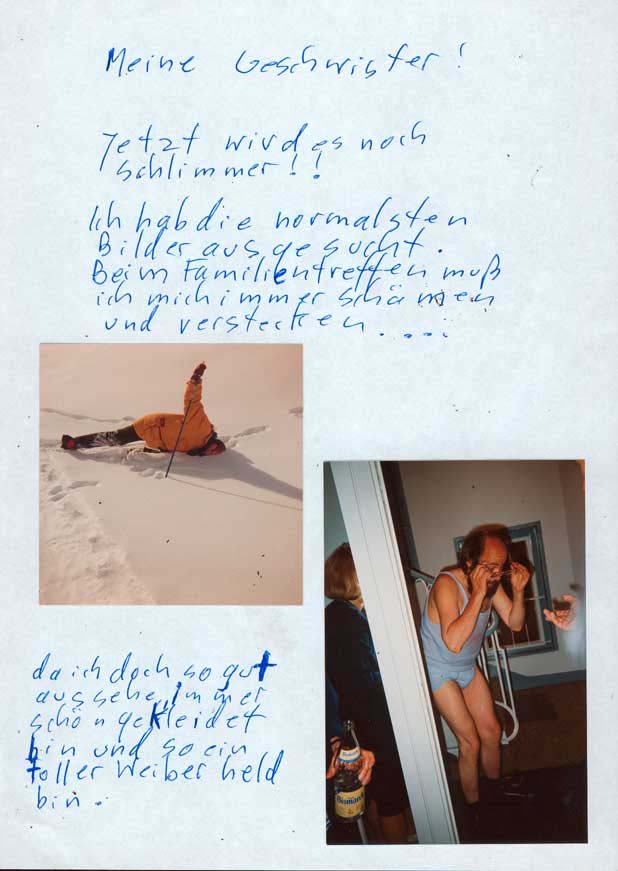 Meine Geschwister!
Jetzt wird es noch
schlimmer!!
Ich hab die normalsten
Bilder ausgesucht.
Beim Familientreffen muß
ich mich immer schämen
und verstecken.....
da ich doch so gut
aussehe, immer
schön gekleidet
bin und so ein
toller Weiberheld
bin.
Bismarck